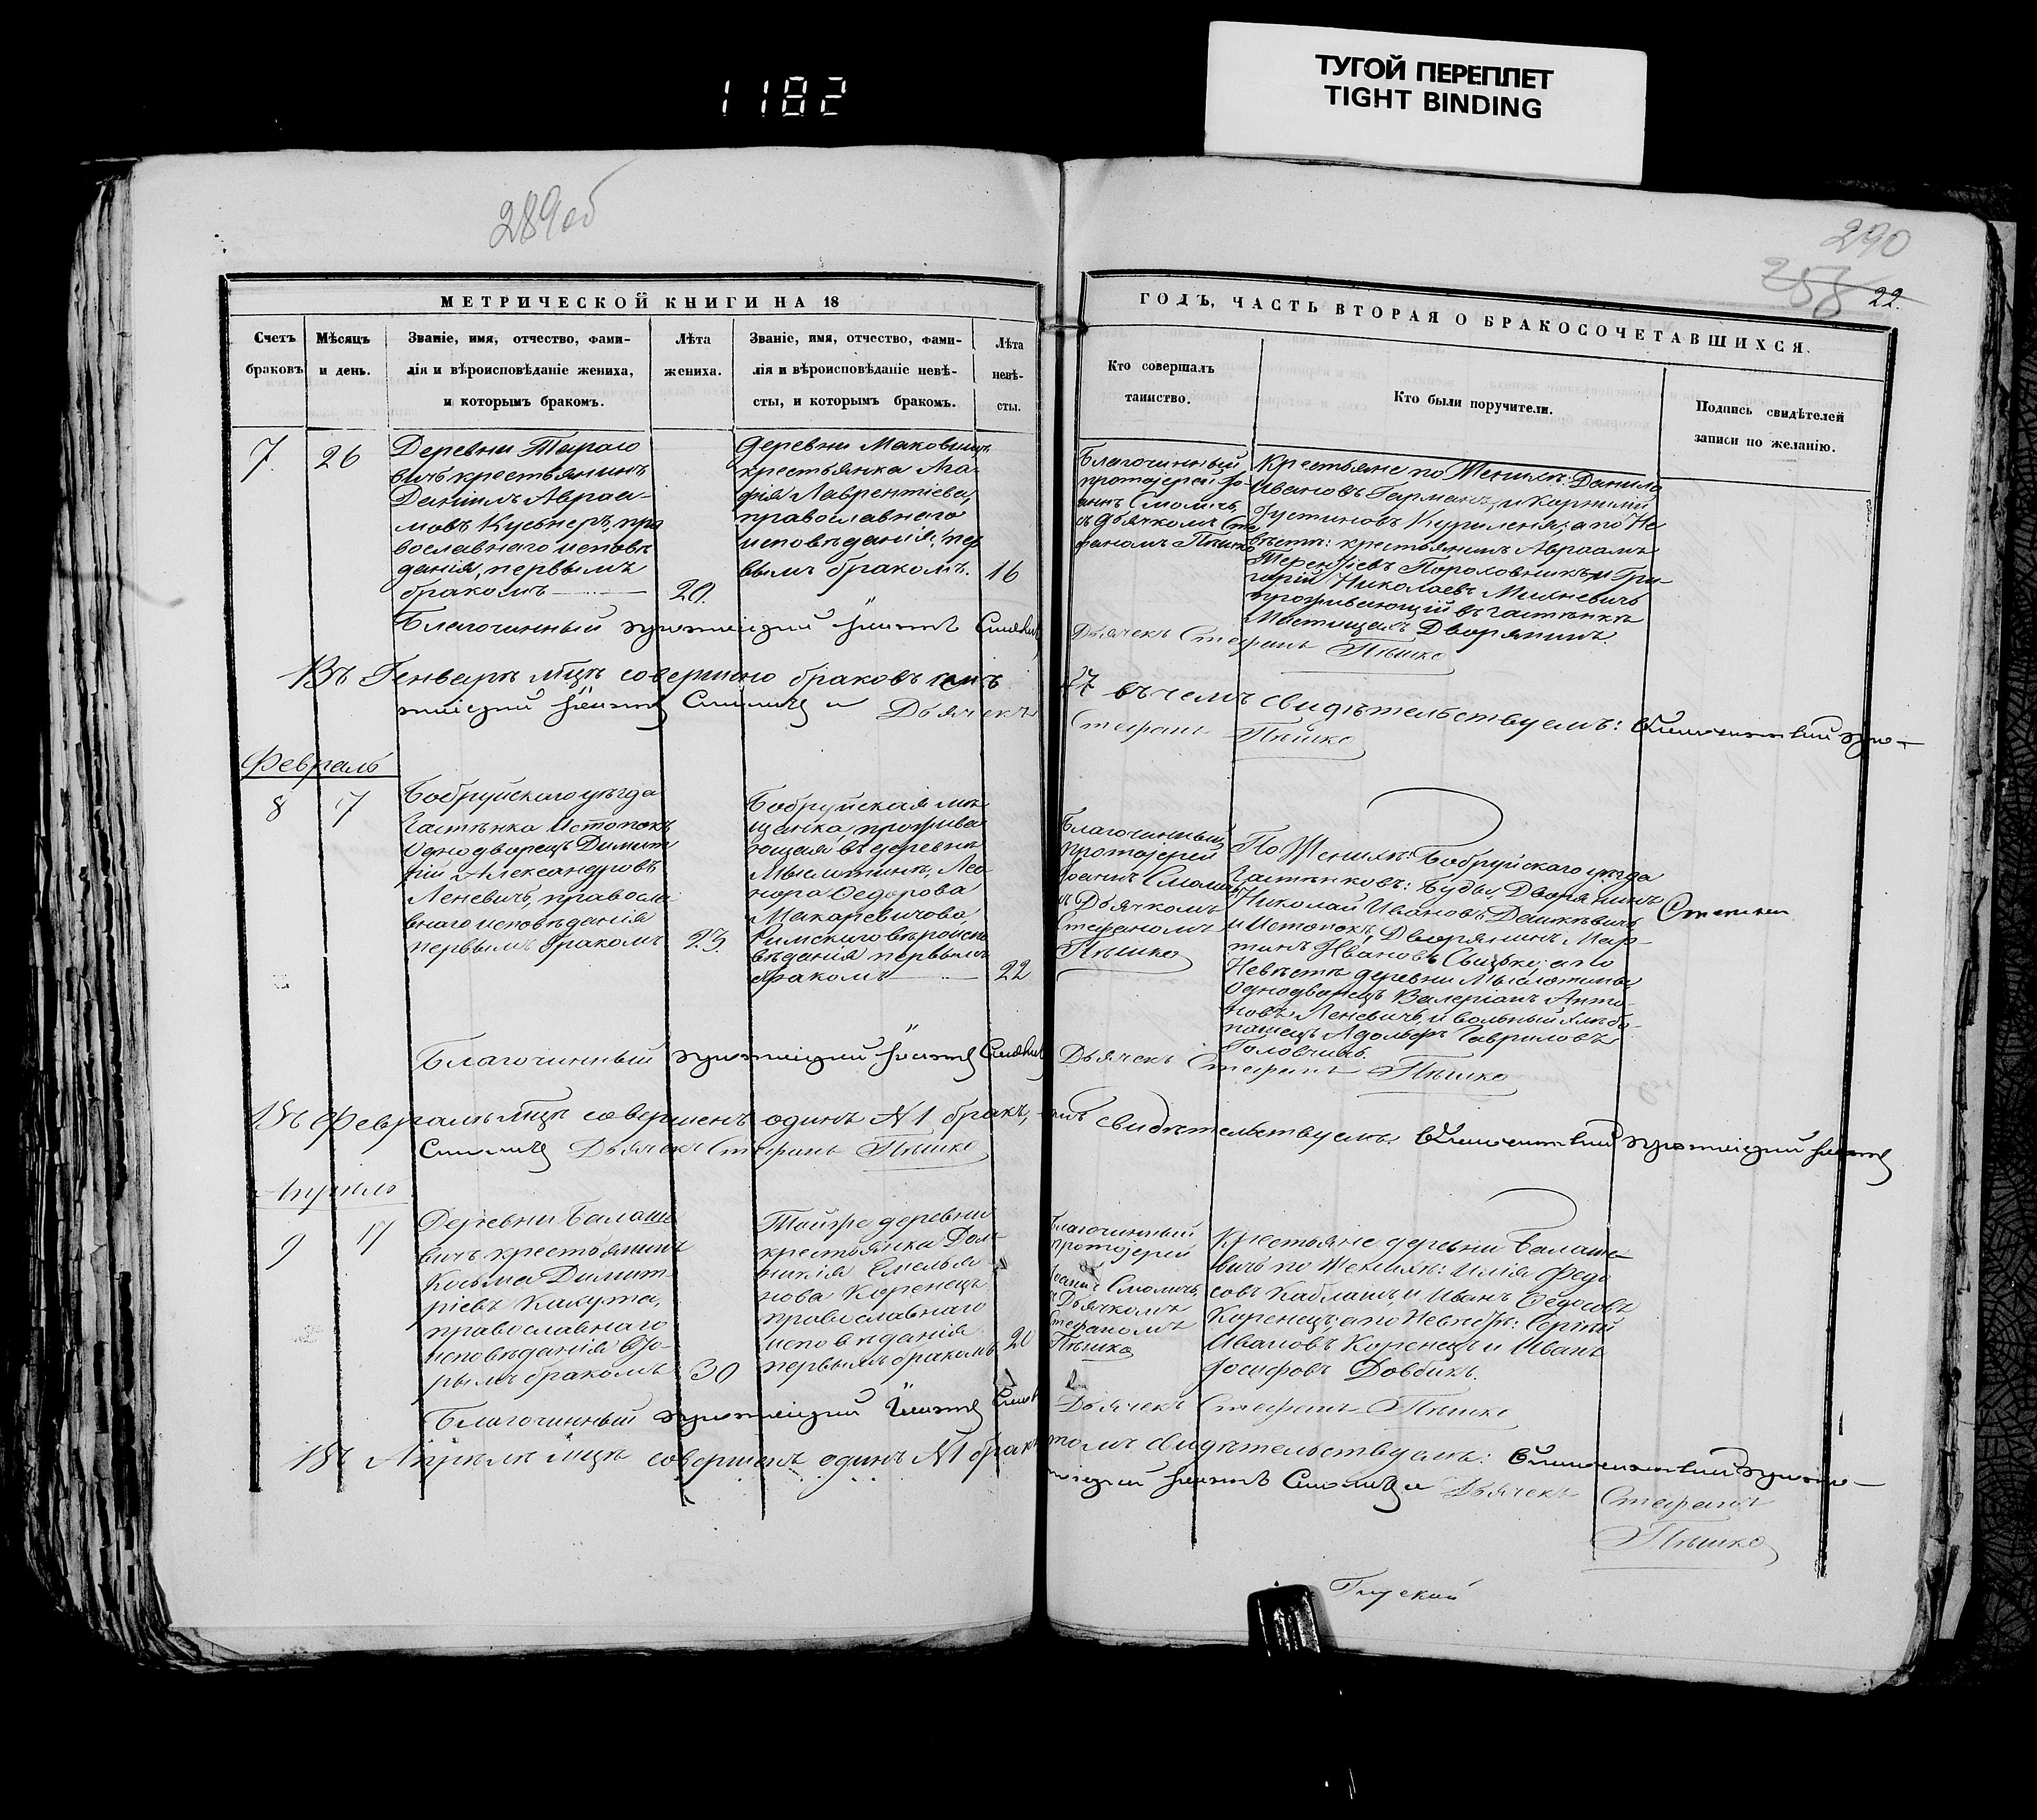 1182
ТУГОЙ ПЕРЕПЛЕТ
TIGHT BINDING
289об
290
258
22.
МЕТРИЧЕСКОЙ КНИГИ НА 18
Счетъ
браковъ
Мѣсяцъ
и день.
Званіе, имя, отчество, фами-
лія и вѣроисповѣданіе жениха,
и которымъ бракомъ.
Лѣта
жениха.
Званіе, имя, отчество, фами-
лія и вѣроисповѣданіе невѣ-
сты, и которымъ бракомъ.
Лѣта
невѣ-
сты.
ГОДЪ, ЧАСТЬ ВТОРАЯ О БРАКОСОЧЕТАВШИХСЯ.
Кто совершалъ
таинство.
Кто были поручители.
Подпись свидѣтелей
записи по желанію.
7.
26
Деревни Тараго
вичъ крестьянинъ
Даніилъ Авраа-
мовъ Кушнеръ, пра
вославнаго исповѣ
данія, первымъ
бракомъ
20.
Деревни Маковичъ
крестьянка Ага-
фія Лаврентіева,
православнаго
исповѣданія, пер
вымъ бракомъ.
16
Благочинный
протоіерей Іо-
аннъ Смоличъ
съ Дьячкомъ Сте
фаномъ Пѣшко
Крестьяне по Женихѣ: Данило
Ивановъ Германъ, и Корнилій
Іустиновъ Куриленя; а по Не
вѣстѣ: крестьянинъ Авраамъ
Терентіевъ Пороховникъ, и Гри-
горій Николаевъ Миляневичъ
проживающій въ застѣнкѣ
Мостищахъ Дворянинъ.
Благочинный протоіерей Іоаннъ Смоличъ
Дьячекъ Стефанъ Пѣшко
Въ Генварѣ мцѣ совершено браковъ семь
27 въ чемъ свидѣтельствуемъ: Благочинный про-
тоіерей Іоаннъ Смоличъ и Дьячекъ
Стефанъ Пѣшко
Февраль
8
17
Бобруйскаго уѣзда
Застѣнка Истопокъ
Однодворецъ Димит
рій Александровъ
Леневичъ, правосла
внаго исповѣданія
первымъ бракомъ
23.
Бобруйская мѣ
щанка, прожива
ющая въ деревнѣ
Мыслотинѣ, Лео
нора Ѳедорова
Макаревичова,
Римскаго вѣроиспо
вѣданія первымъ
бракомъ
22
Благочинный
Протоіерей
Іоаннъ Смоличъ
съ Дьячкомъ
Стефаномъ
Пѣшко
По Женихѣ: Бобруйскаго уѣзда
Застѣнковъ: Буды, Дворянинъ
Николай Ивановъ Дашкевичъ
и Истопокъ, Дворянинъ Мар-
тинъ Ивановъ; а по
Невѣстѣ деревни Мыслотина
Однодворецъ Валеріанъ Анто-
новъ Леневичъ, и вольный хлѣбо-
пашецъ Адольфъ Гавриловъ
Головчицъ.
Благочинный протоіерей Іоаннъ Смоличъ
Дьячекъ Стефанъ Пѣшко
Въ Февралѣ мцѣ совершенъ одинъ N1 бракъ,
свидѣтельствуемъ: Благочинный протоіерей Іоаннъ
Смоличъ Дьячекъ Стефанъ Пѣшко
Апрѣль
9
17
Деревни Балаше
вичъ крестьянинъ
Косьма Димит-
ріевъ Кикута,
православнаго
исповѣданія Вто-
рымъ бракомъ
30
Тойже деревни
крестьянка Дом-
никія Емелья
нова Коренецъ
православнаго
исповѣданія
первымъ бракомъ
20
Благочинный
протоіерей
Іоаннъ Смоличъ,
съ Дьячкомъ
Стефаномъ
Пѣшко
Крестьяне деревни Балаше-
вичъ по Женихѣ: Илія Федо
совъ Каблашъ, и Иванъ Ѳедосовъ
Коренецъ; а по Невѣстѣ: Сергѣй
Ивановъ Коренецъ и Иванъ
Іосифовъ Довбикъ.
Благочинный протоіерей Іоаннъ
Дьячекъ Стефанъ Пѣшко
Въ Апрѣлѣ мцѣ совершенъ одинъ N1 бракъ
томъ свидѣтельствуемъ: Благочинный прото-
іерей Іоаннъ Смоличъ и Дьячекъ Стефанъ
Пѣшко
Глускій